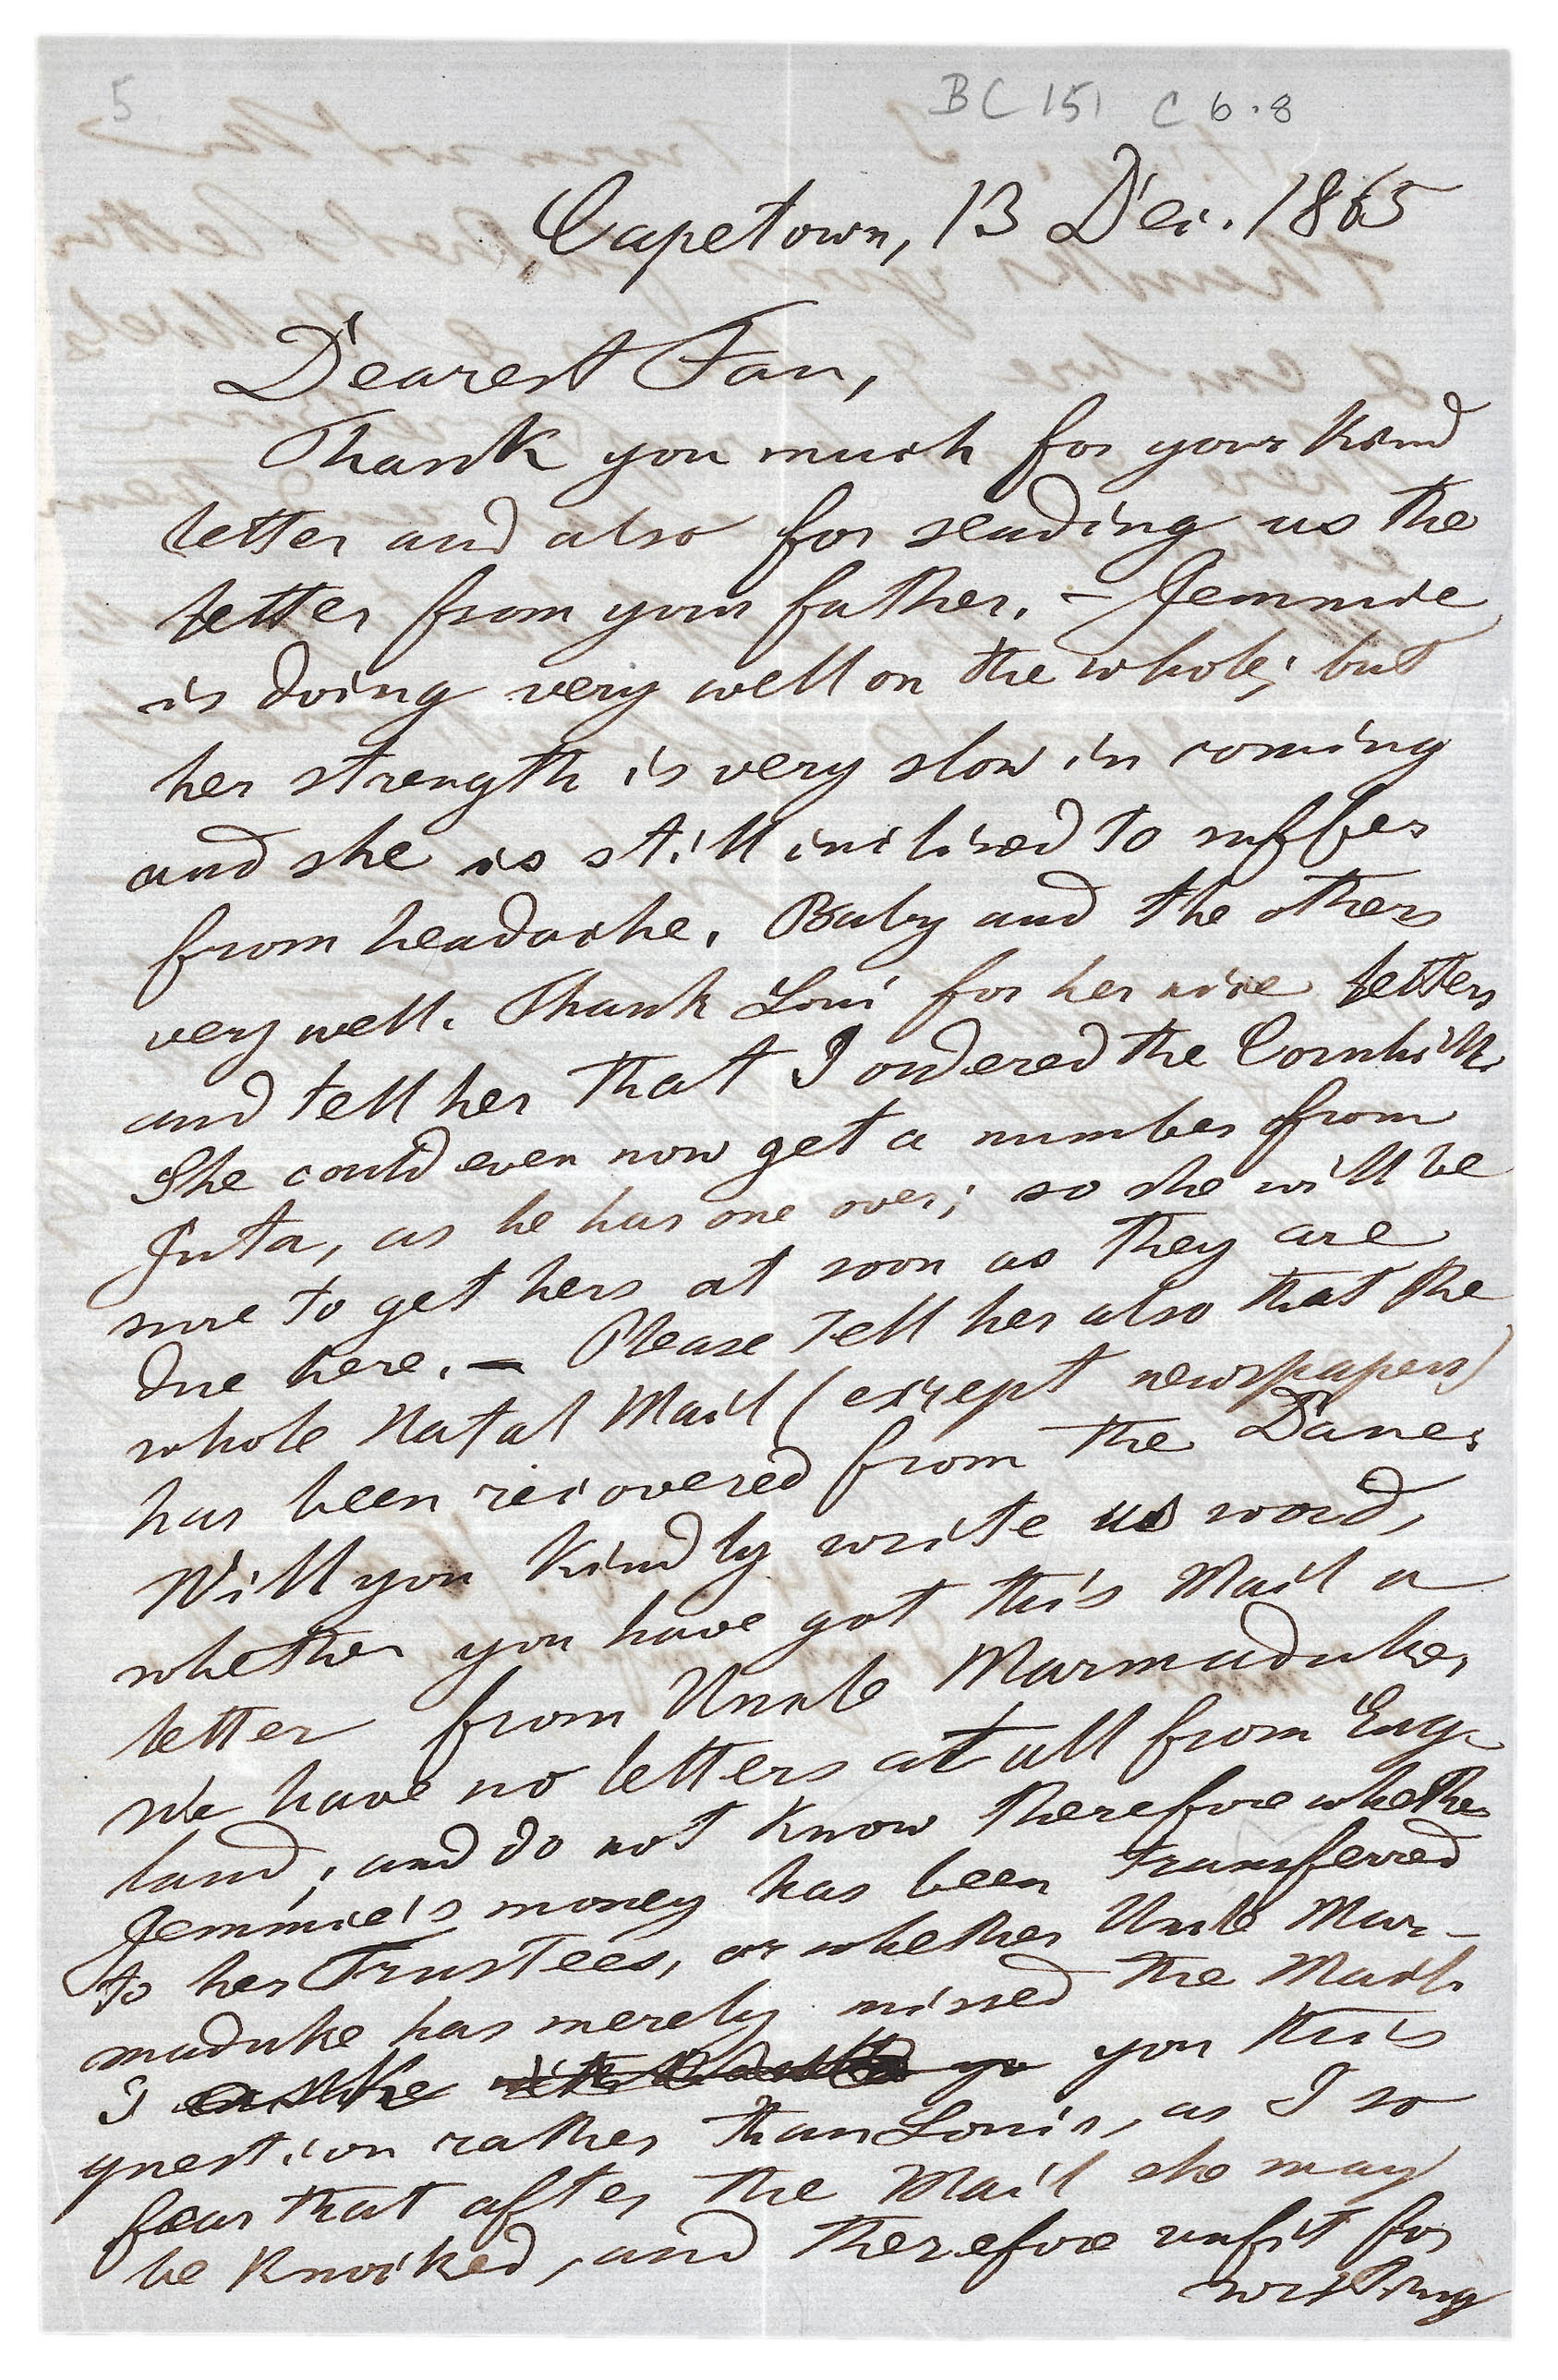 5
BC 151 C 6.8
Capetown, 13 Dec. 1865
Dearest Fan,
Thank you much for your kind
letter and also for sending us the
letter from your father. – Jemmie
is doing very well on the whole; but
her strength is very slow in coming
and she is still inclined to suffer
from headache. Baby and the others
very well. Thank Loui for her nice letters
and tell her that I ordered the Cornhill.
She could even now get a number from
Juta, as he has one over; so she will be
sure to get hers at soon as they are
due here. – Please tell her also that the
whole Natal Mail (except newspapers)
has been recovered from the Dane.
Will you kindly write us word,
whether you have got this Mail a
letter from Uncle Marmaduke,
We have no letters at all from Eng-
land; and do not know therefore whether
Jemmie's money has been transferred
to her Trustees, or whether Uncle Mar-
maduke has merely missed the Mail.
I you this
question rather than Louis, as I so
fear that after the Mail she may
be knocked, and therefore unfit for
writing